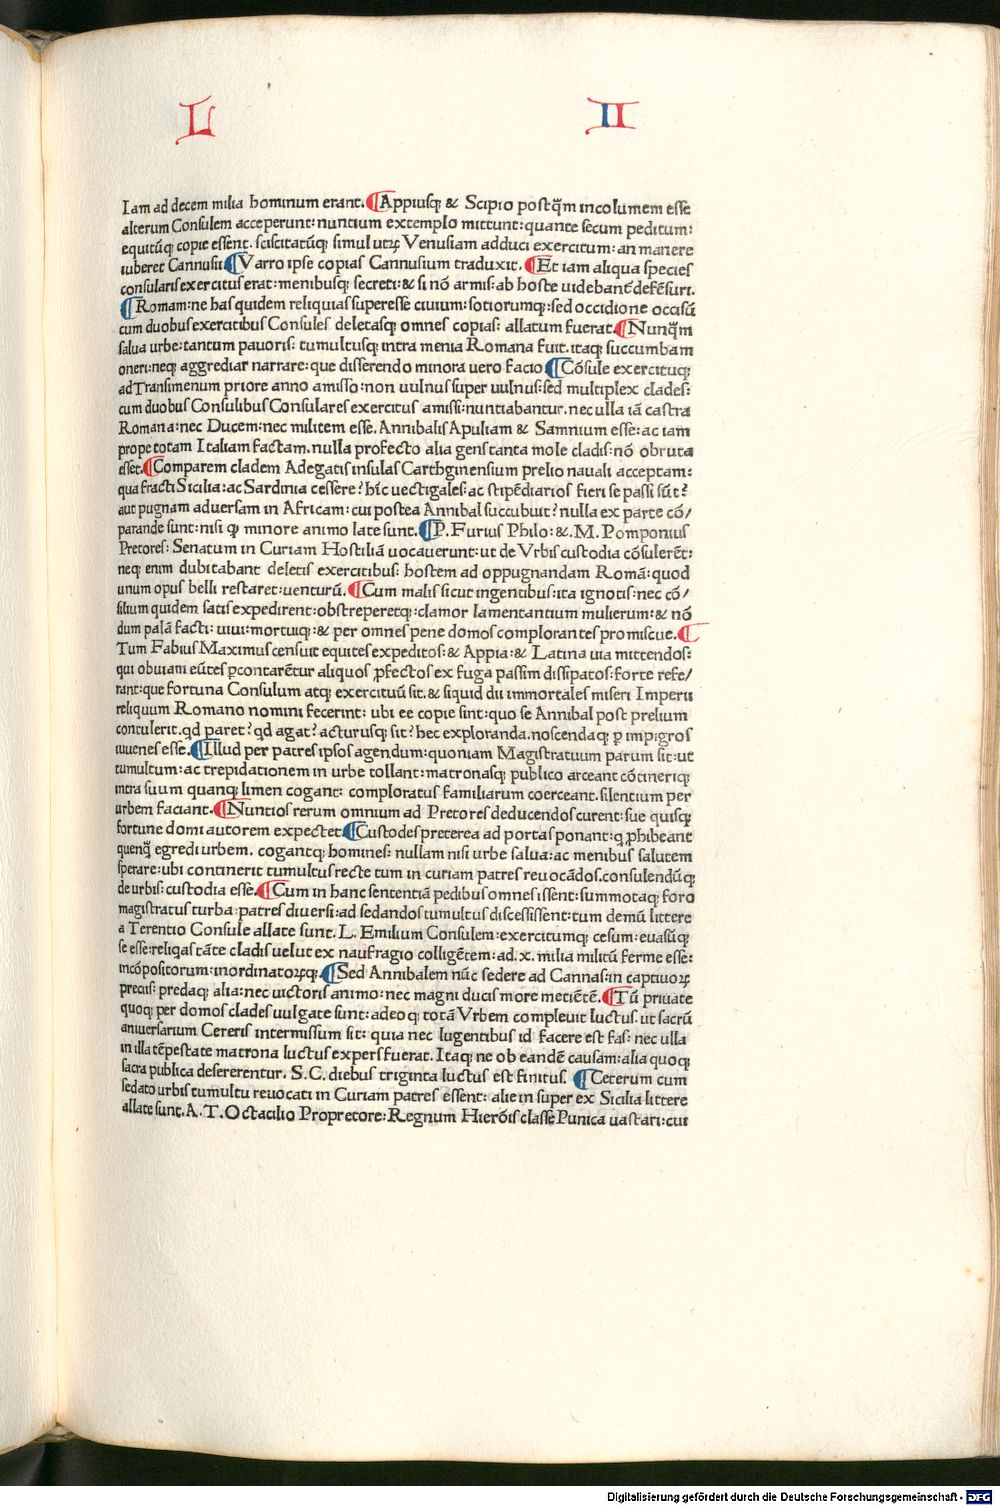 L II
Iam ad decem milia hominum erant. ¶Appiusq; & Scipio postq̄m incolumem esse
alterum Consulem acceperunt: nuntium extemplo mittunt: quante secum peditum:
equitūq; copie essent. sciscitatūq; simul utꝝ Venusiam adduci exercitum: an manere
iuberet Cannusii ¶Varro ipse copias Cannusium traduxit. ¶Et iam aliqua species
consularis exercitus erat: menibusq; secreti: & si nō armis: ab hoste uidebant̄ defēsuri.
¶Romam: ne has quidem reliquias superesse ciuium: sotiorumq;: sed occidione occisū
cum duobus exercitibus Consules deletasq; omnes copias: allatum fuerat. ¶Nunq̄m
salua urbe: tantum pauoris: tumultusq; intra menia Romana fuit. itaq; succumbam
oneri: neq; aggrediar narrare: que disserendo minora uero facio ¶Cōsule exercituq;
ad Transimenum priore anno amisso: non uulnus super uulnus: sed multiplex clades:
cum duobus Consulibus Consulares exercitus amissi: nuntiabantur. nec ulla iā castra
Romana: nec Ducem: nec militem esse. Annibalis Apuliam & Samnium esse: ac iam
prope totam Italiam factam. nulla profecto alia gens tanta mole cladis: nō obruta
esset. ¶Comparem cladem Adegatis insulas Carthginensium prelio nauali acceptam:
qua fracti Sicilia: ac Sardinia cessere? hīc uectigales: ac stipēdiarios fieri se passi sūt?
aut pugnam aduersam in Africam: cui postea Annibal succubuit? nulla ex parte cō/
parande sunt: nisi ꝙ minore animo late sunt. ¶P. Furius Philo: &. M. Pomponius
Pretores: Senatum in Curiam Hostiliā uocauerunt: ut de Vrbis custodia cōsulerēt:
neq; enim dubitabant deletis exercitibus: hostem ad oppugnandam Romā: quod
unum opus belli restaret: uenturū. ¶Cum malis sicut ingentibus: ita ignotis: nec cō/
silium quidem satis expedirent: obstreperetq;: clamor lamentantium mulierum: & nō
dum palā facti: uiui: mortuiq;: & per omnes pene domos complorantes promiscue. ¶
Tum Fabius Maximus censuit equites expeditos: & Appia: & Latina uia mittendos:
qui obuiam eūtes ꝑcontarētur aliquos ꝓfectos ex fuga passim dissipatos: forte refe/
rant: que fortuna Consulum atq; exercituū sit. & siquid dii immortales miseri Imperii
reliquum Romano nomini fecerint: ubi ee copie sint: quo se Annibal post prelium
contulerit. qd paret? qd agat? acturusq; sit? hec exploranda. noscendaq; ꝑ impigros
iuuenes esse. ¶Illud per patres ipsos agendum: quoniam Magistratuum parum sit: ut
tumultum: ac trepidationem in urbe tollant: matronasq; publico arceant cōtineriq;
intra suum quanq; limen cogant: comploratus familiarum coerceant. silentium per
urbem faciant. ¶Nuntios rerum omnium ad Pretores deducendos curent: sue quisq;
fortune domi autorem expectet ¶Custodes preterea ad portas ponant: q ꝓhibeant
quenq̄ egredi urbem. cogantq; homines: nullam nisi urbe salua: ac menibus salutem
sperare: ubi continerit tumultus recte tum in curiam patres reuocādos. consulendūq;
de urbis: custodia esse. ¶Cum in hanc sententiā pedibus omnes issent: summotaq; foro
magistratus turba: patres diuersi: ad sedandos tumultus discessissent: tum demū littere
a Terentio Consule allate sunt. L. Emilium Consulem: exercitumq; cesum: euasūq;
se esse: reliqas tāte cladis uelut ex naufragio colligētem: ad. x. milia militū ferme esse:
incōpositorum: inordinatoꝝq;. ¶Sed Annibalem nūc sedere ad Cannas: in captiuoꝝ
preciis: predaq; alia: nec uictoris animo: nec magni ducis more metiētē. ¶Tū priuate
quoq; per domos clades uulgate sunt: adeo q totā Vrbem compleuit luctus. ut sacrū
aniuersarium Cereris intermissum sit: quia nec lugentibus id facere est fas: nec ulla
in illa tēpestate matrona luctus expers fuerat. Itaq; ne ob eandē causam: alia quoq;
sacra publica desererentur. S. C. diebus triginta luctus est finitus. ¶Ceterum cum
sedato urbis tumultu reuocati in Curiam patres essent: alie in super ex Sicilia littere
allate sunt. A. T. Octacilio Propretore: Regnum Hierōis classe Punica uastari: cui
Digitalisierung gefördert durch die Deutsche Forschungsgemeinschaft - DFG